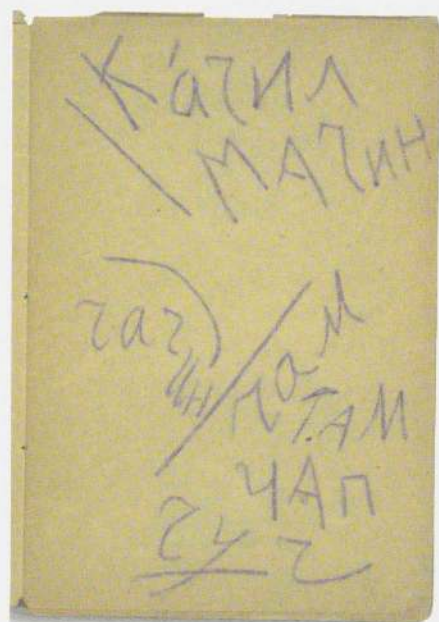 К'ачил
МАЧин
чач
ин
чам
ТАМ
ЧАП
чуч